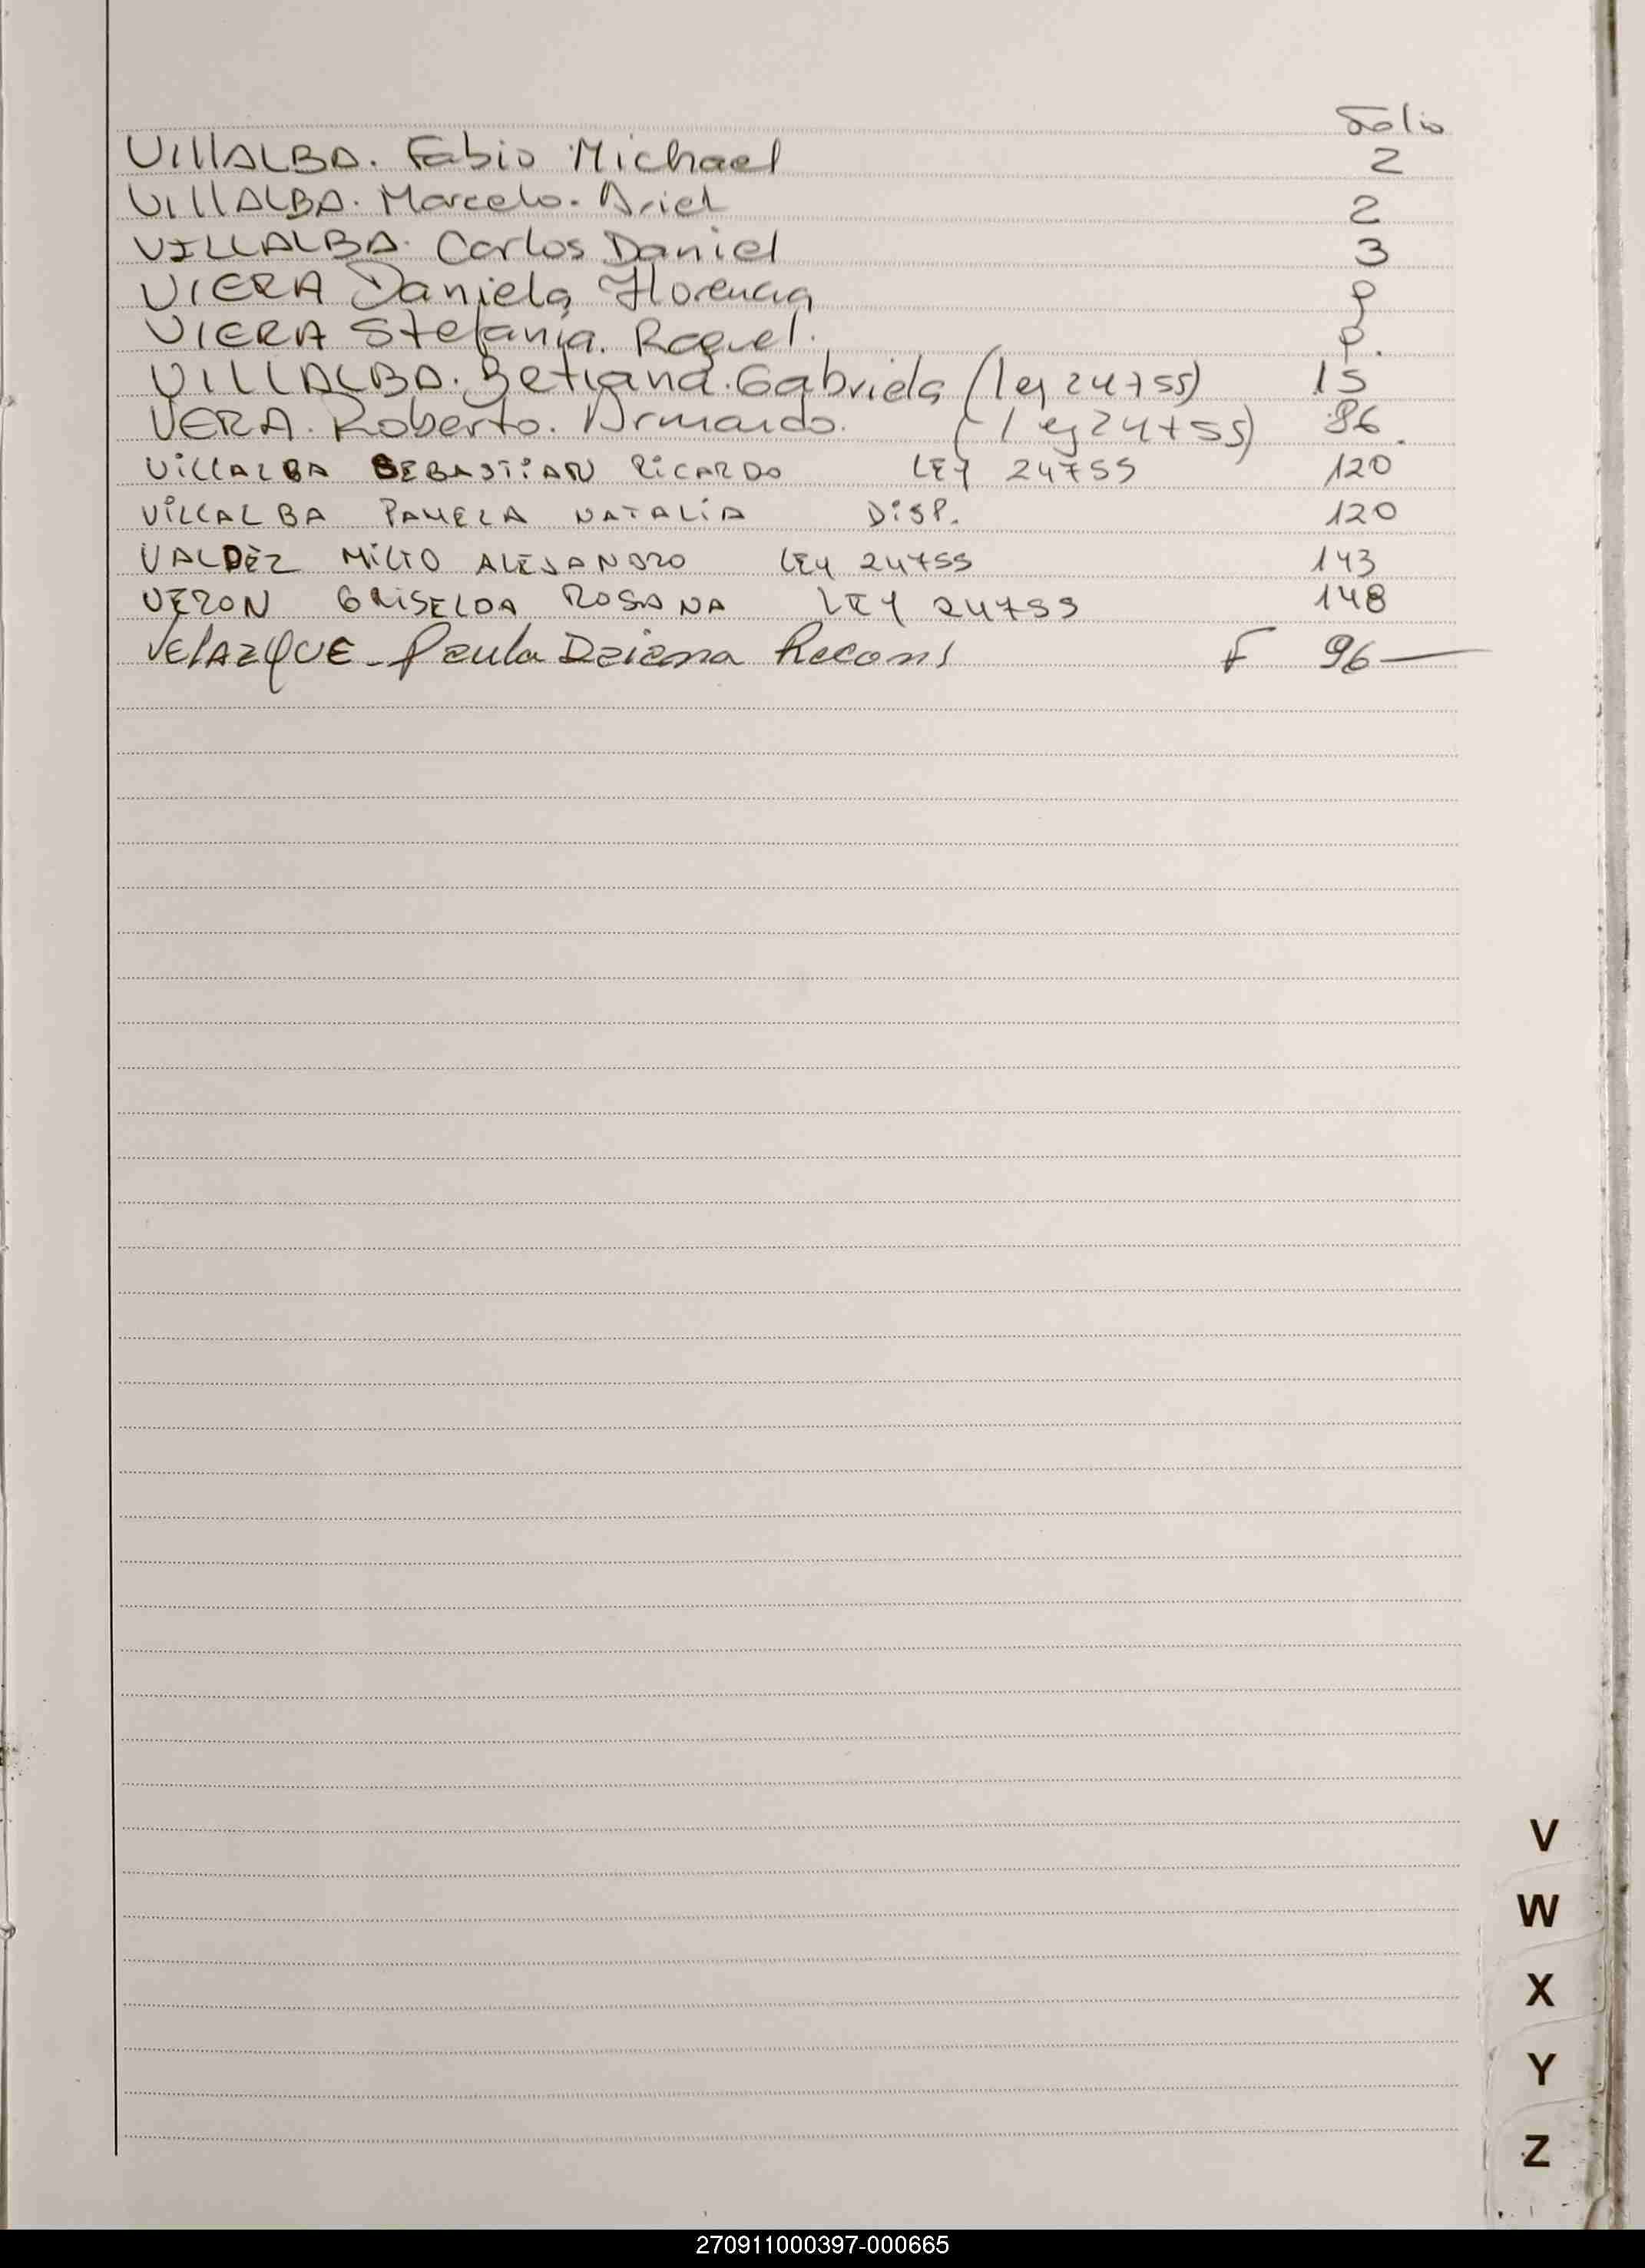 Folio
VillALBA. Fabio Michael 2
VillALBA. Marcelo. Ariel 2
VILLALBA. Carlos Daniel 3
VIERA Daniela Florencia
VIERA Stefania. Raquel.
VILLALBA. Betiana. Gabriela (ley 24755) 15
VERA. Roberto. Armando. (ley 24755) 86.
ViLLALBA SEBASTiAN RiCARDO LEY 24755 120
ViLLALBA PAMELA NATALiA DiSP. 120
VALDÈZ ALEJANDRO LEY 24755 143
VERON GRiSELDA ROSANA LEY 24755 148
VElAZQUE - Paula Daiana F 96
V
W
X
Y
Z
270911000397-000665